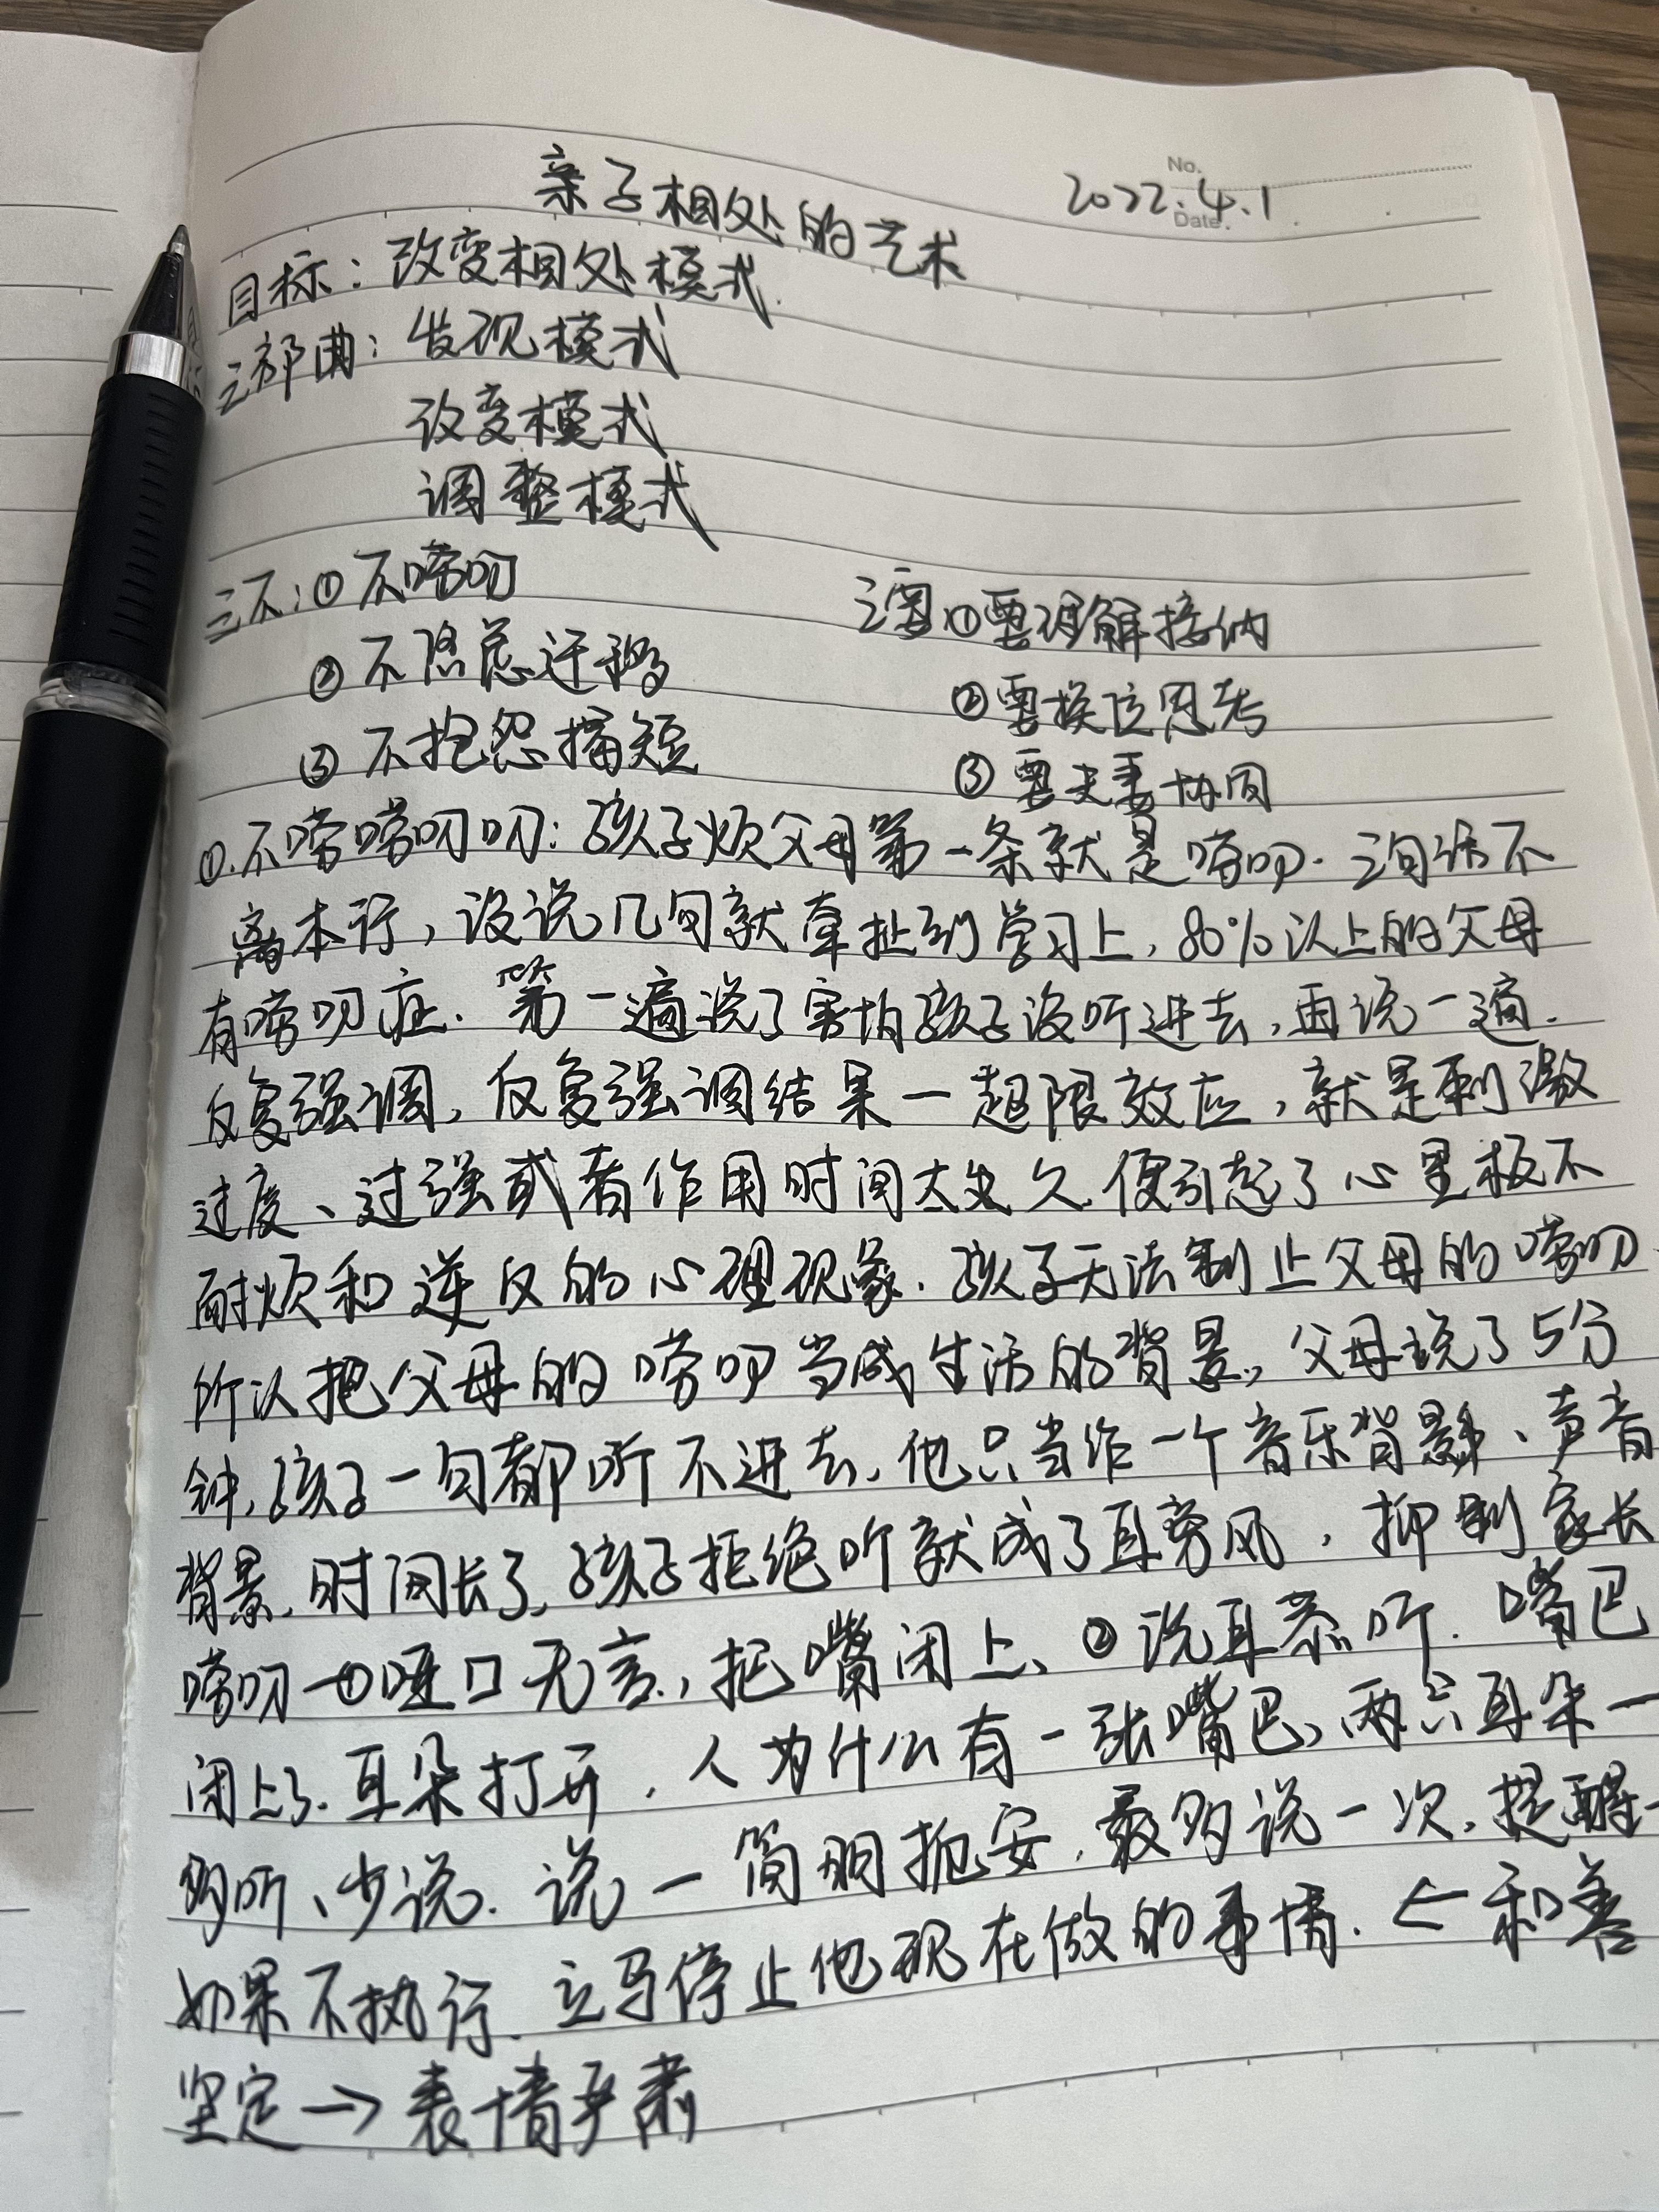 No.
Date.
2022.4.1
亲子相处的艺术
目标：改变相处模式.
三部曲：发现模式
改变模式
调整模式
三不：①不唠叨
②不隐忍迁移
③不抱怨揭短
三要①要理解接纳
②要换位思考
③要夫妻协同
①.不唠唠叨叨：孩子烦父母第一条就是唠叨.三句话不
离本行，没说几句就牵扯到学习上，80%以上的父母
有唠叨症.第一遍说了害怕孩子没听进去，再说一遍.
反复强调，反复强调结果一超限效应，就是刺激
过度、过强或者作用时间太久.便引起了心里极不
耐烦和逆反的心理现象.孩子无法制止父母的唠叨.
所以把父母的唠叨当成生活的背景，父母说了5分
钟，孩子一句都听不进去，他只当作一个音乐背景、声音
背景，时间长了，孩子拒绝听就成了耳旁风，抑制家长
唠叨—①哑口无言，把嘴闭上、②洗耳恭听.嘴巴
闭上了.耳朵打开，人为什么有一张嘴巴，两只耳朵一
多听、少说.说一简明扼安，最多说一次，提醒一
如果不执行.立马停止他现在做的事情.←和善
坚定→表情严肃